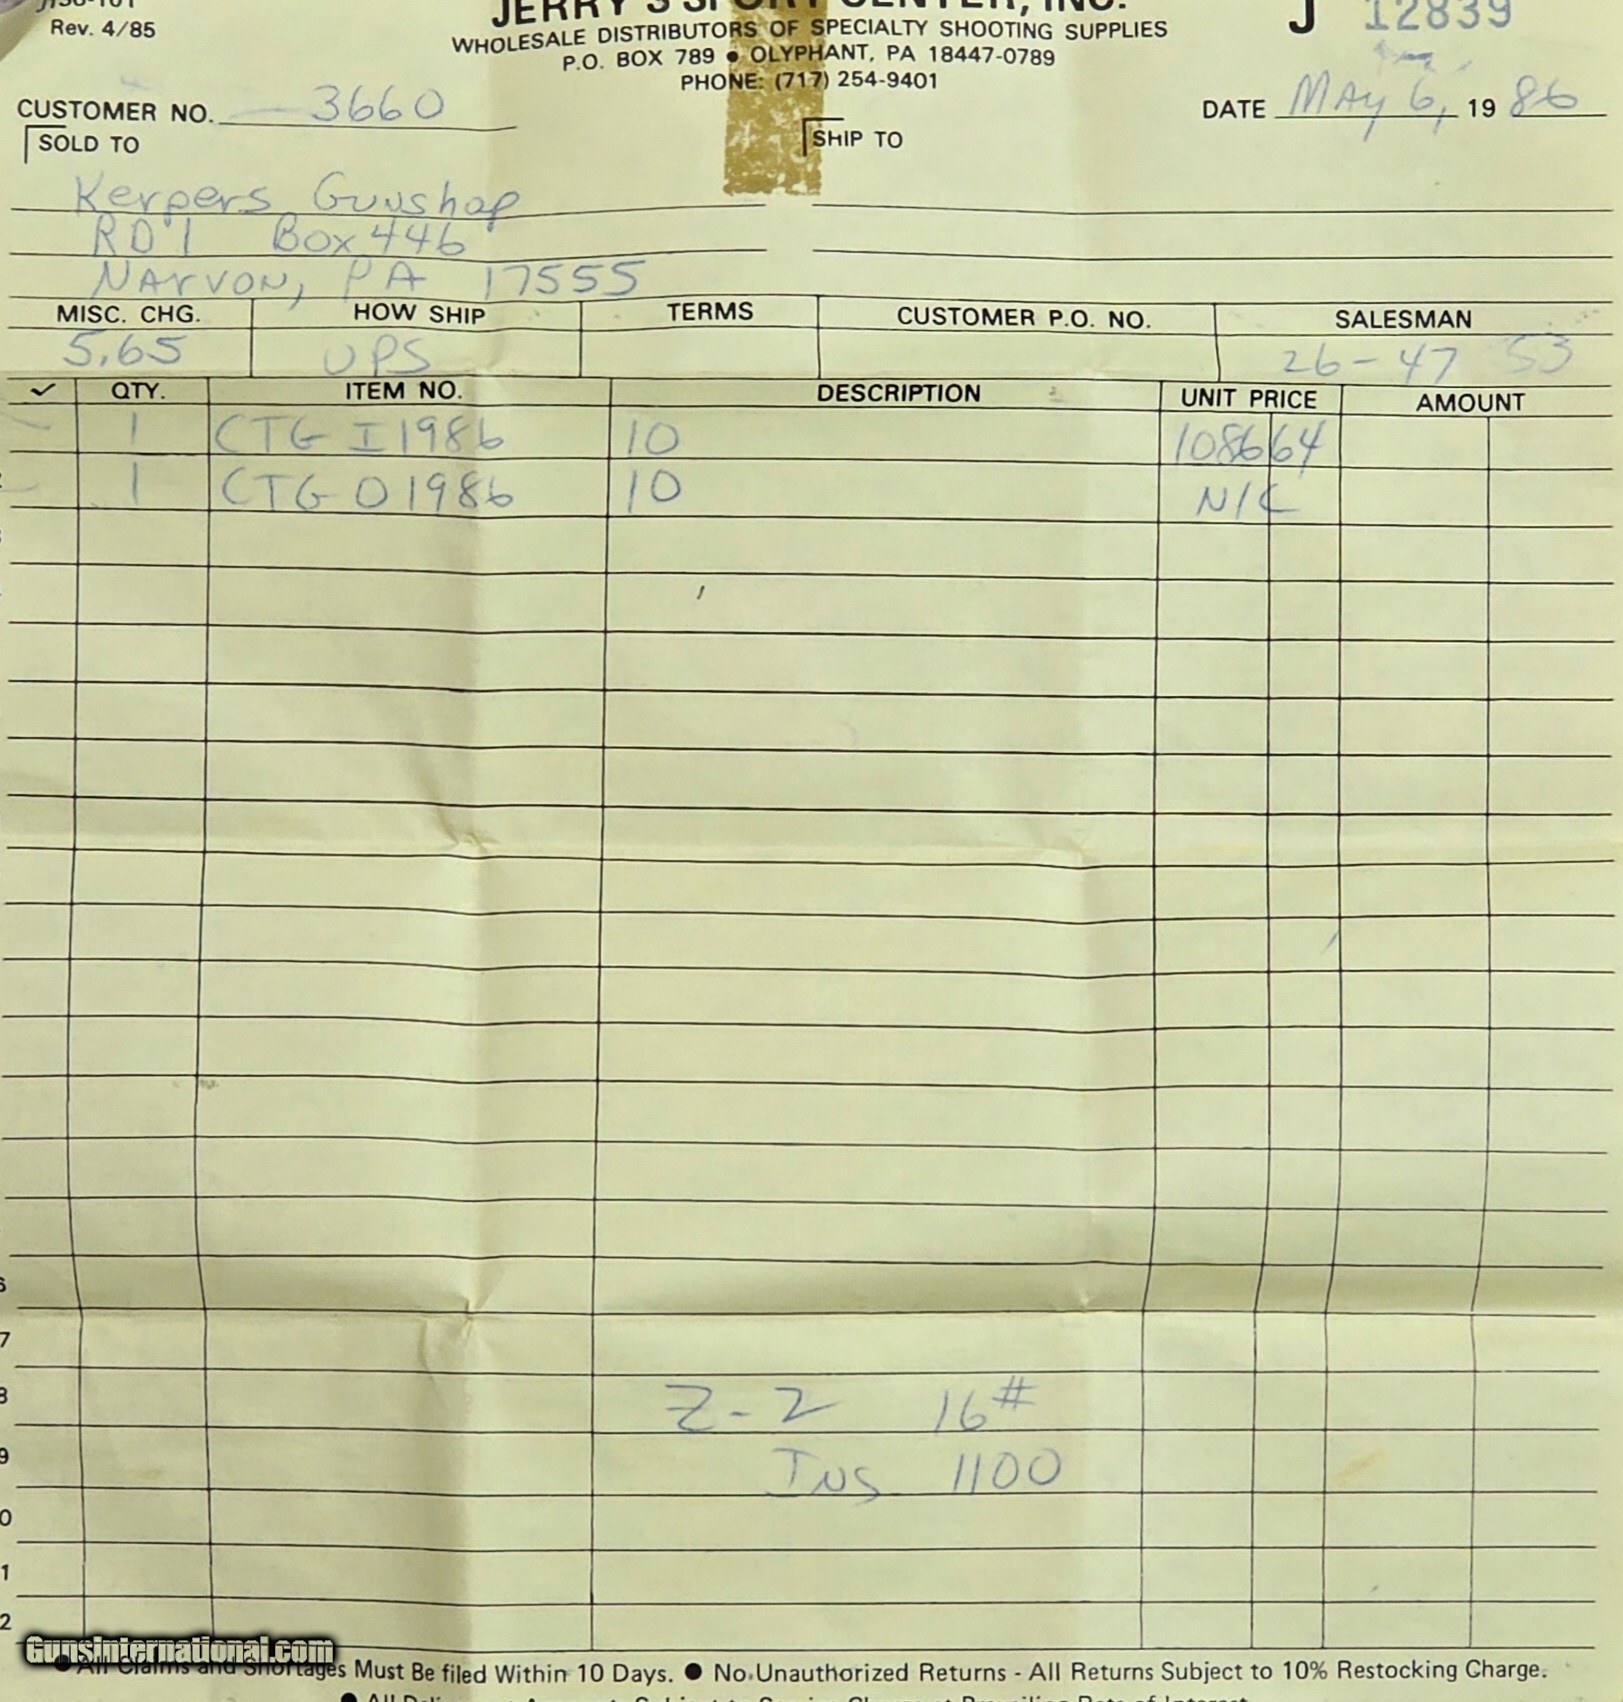 Rev. 4/85
JERRY'S SPORT CENTER, INC.
WHOLESALE DISTRIBUTORS OF SPECIALTY SHOOTING SUPPLIES
P.O. BOX 789 ● OLYPHANT, PA 18447-0789
PHONE: (717) 254-9401
J 12839
CUSTOMER NO. 3660
DATE MAY 6, 19 86
SOLD TO
SHIP TO
Kerpers Gunshop
RD 1 Box 446
NARVON, PA 17555
MISC. CHG. HOW SHIP TERMS CUSTOMER P.O. NO. SALESMAN
5.65 UPS 26-47 53
✓ QTY. ITEM NO. DESCRIPTION UNIT PRICE AMOUNT
1 CTG I1986 10 1086 64
1 CTG O1986 10 N/C
6
7
8 Z-2 16#
9 INS 1100
0
1
2
GunsInternational.com
● All Claims and Shortages Must Be filed Within 10 Days. ● No Unauthorized Returns - All Returns Subject to 10% Restocking Charge.